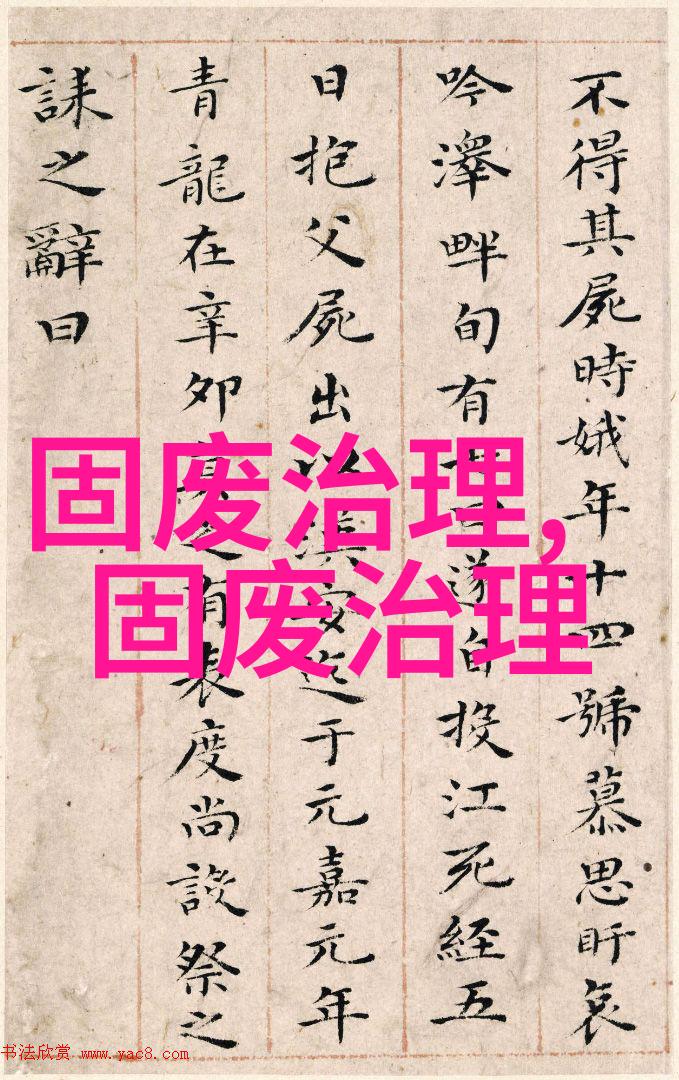 不得其屍時娥年十四號慕思盱哀
吟澤畔旬有七日遂自投江死經五
日抱父屍出以漢安迄于元嘉元年
青龍在辛卯莫之有表度尚設祭之
誄之辭曰
固废治理,
固废治理
书法欣赏 www.yac8.com